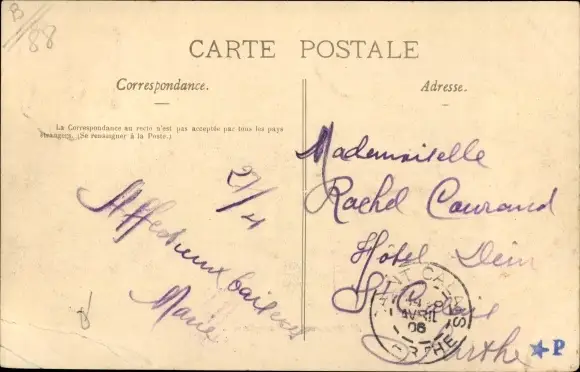 B
88
CARTE POSTALE
Correspondance.
Adresse.
La Correspondance au recto n'est pas acceptée par tous les pays
étrangers. (Se renseigner à la Poste.)
27/4
Affectueux baisers
Marie
Mademoiselle
Rachel Couraud
Hôtel Dein
St Calais
Sarthe
SAINT-CALAIS
AVRIL
06
SARTHE
P